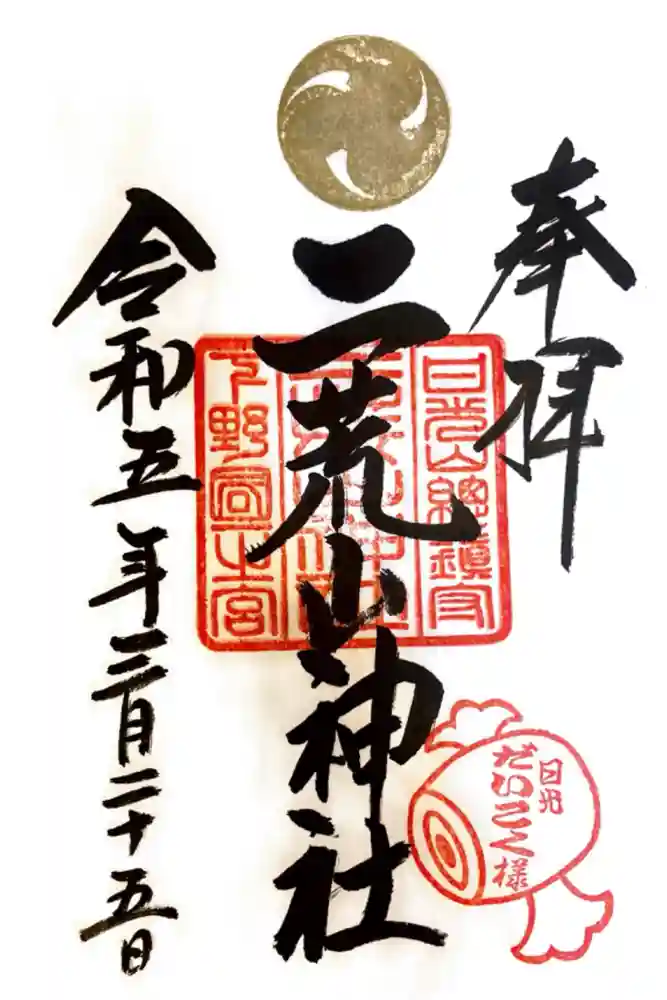 奉拝
日光山總鎮守
二荒山神社
下野國一宮
令和五年三月二十五日
日光
だいこく様